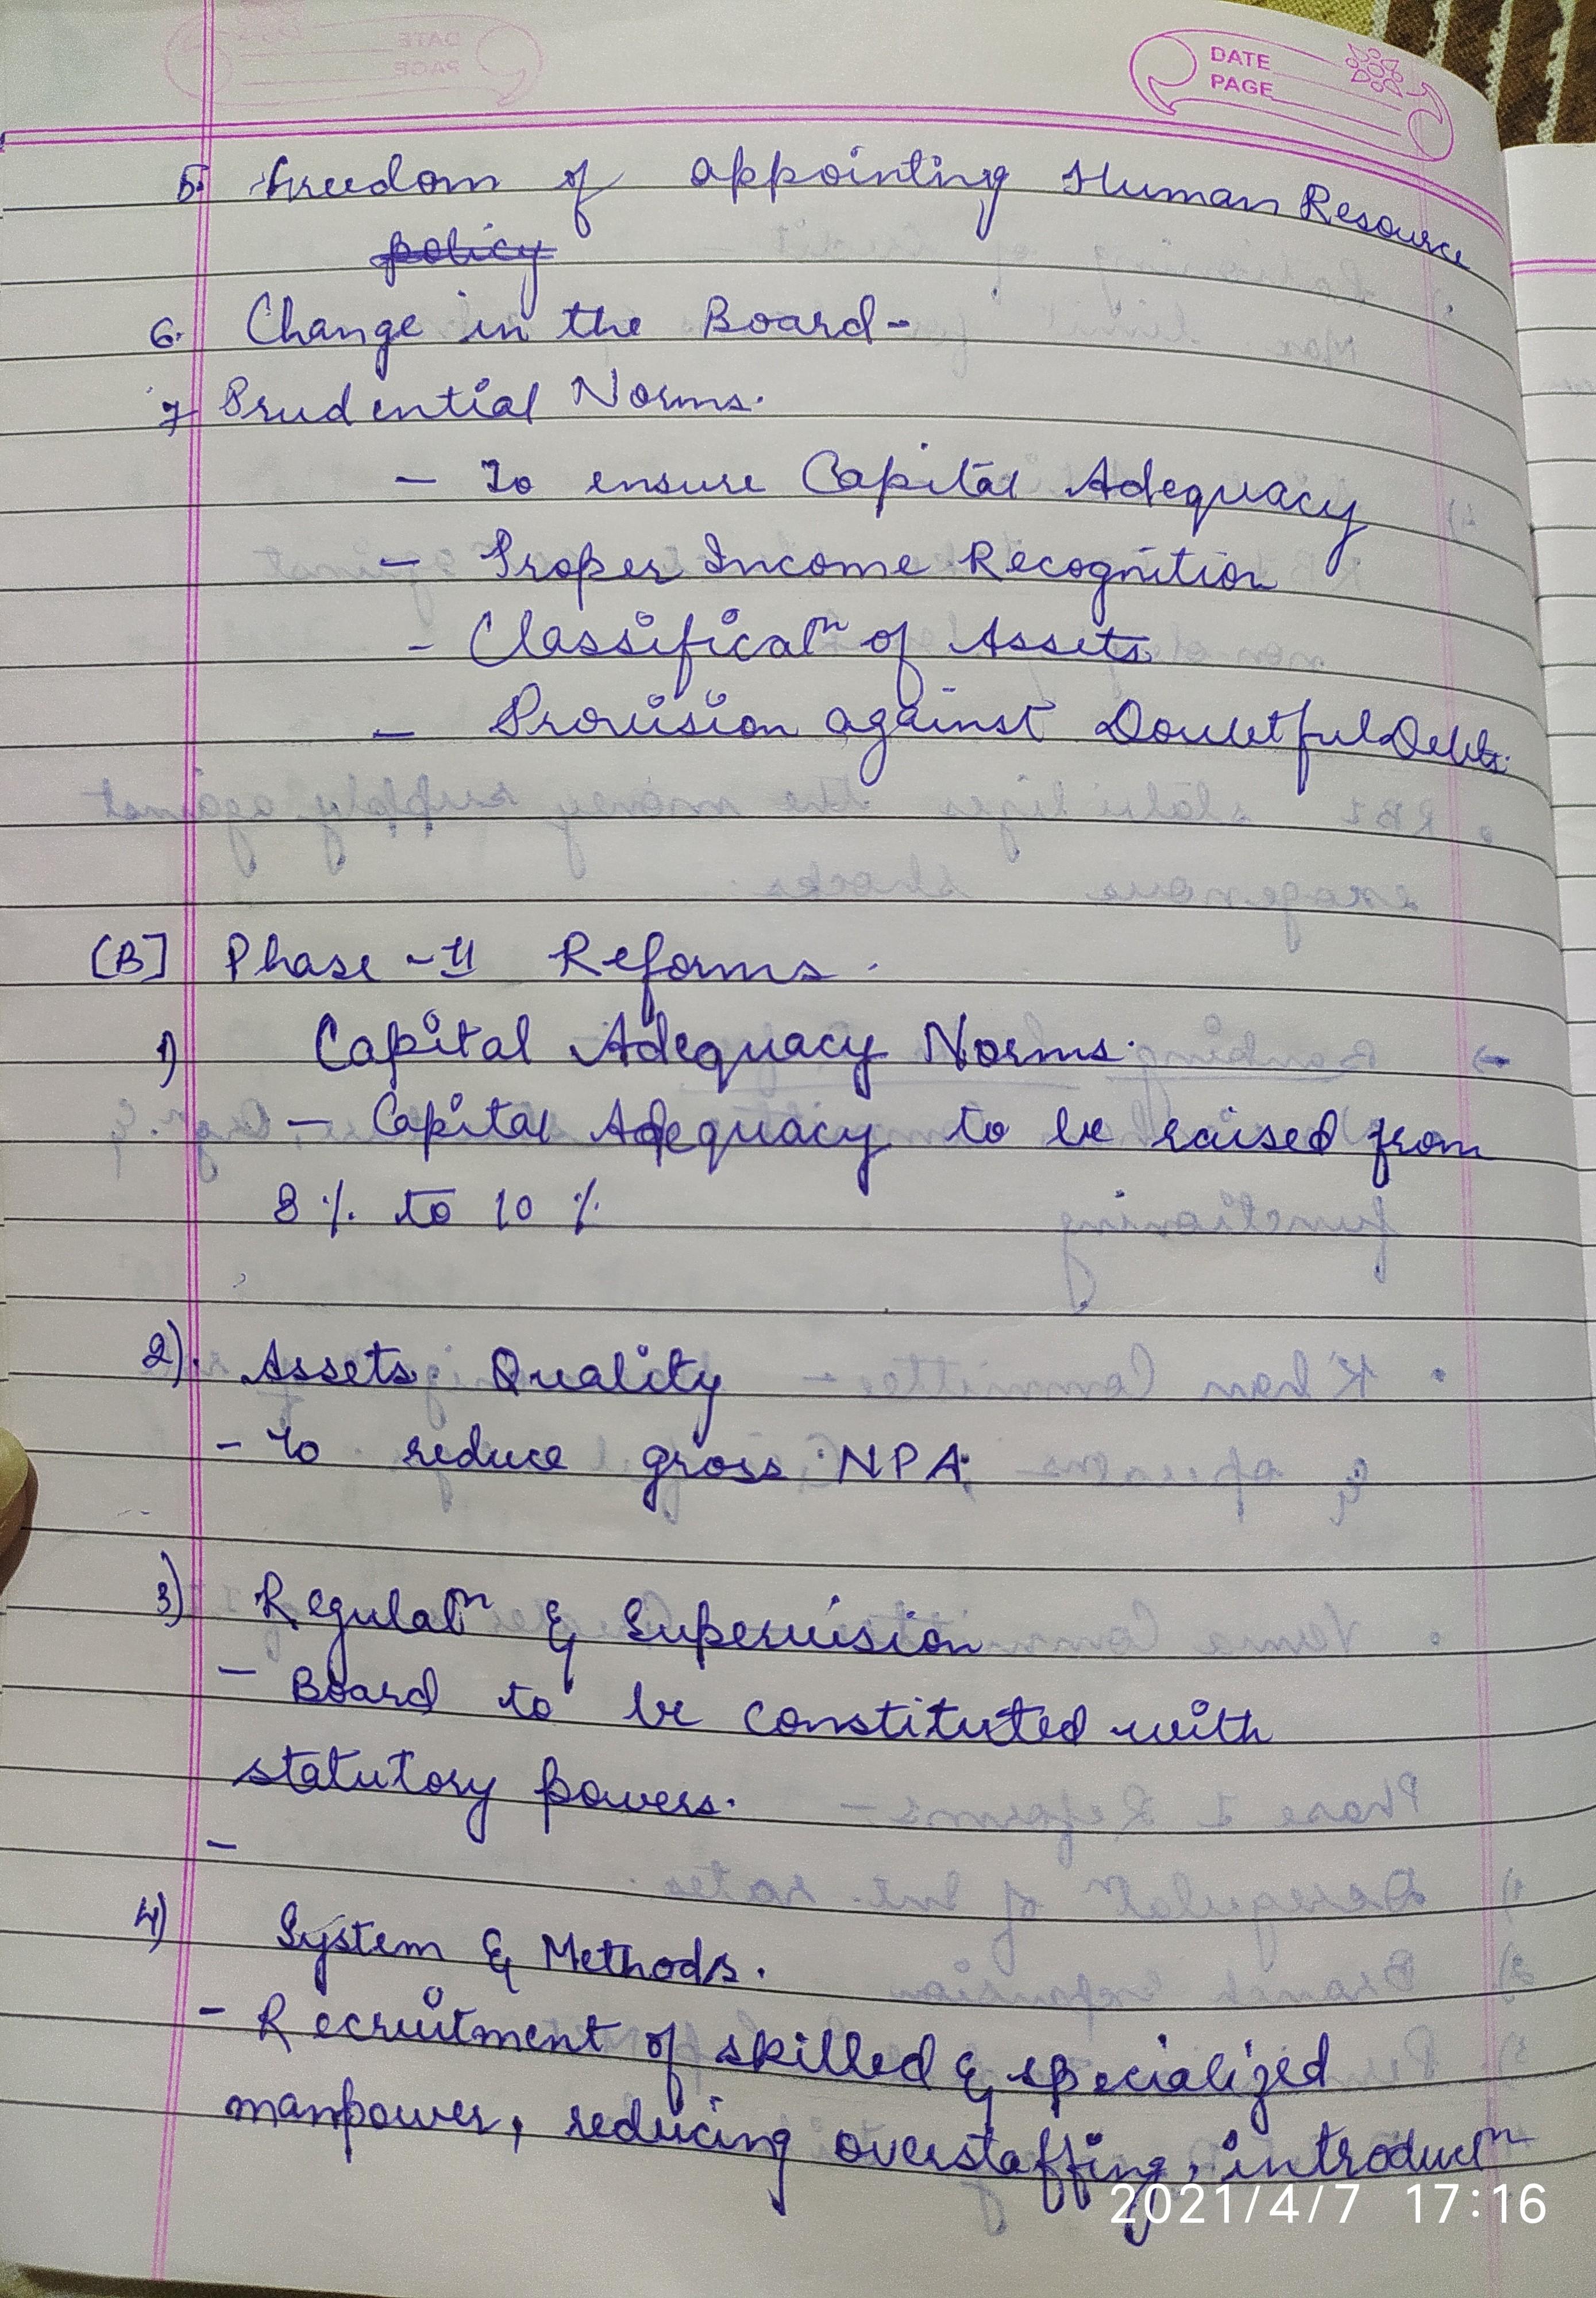 DATE
PAGE
5. Freedom of appointing Human Resource
policy
6. Change in the Board-
7 Prudential Norms.
- To ensure Capital Adequacy
- Proper Income Recognition
- Classificatⁿ of Assets
- Provision against Doubtful Debts.
[B] Phase -II Reforms.
1) Capital Adequacy Norms.
- Capital Adequacy to be raised from
8 % to 10 %
2) Assets Quality
- To reduce gross NPA.
3) Regulatⁿ & Supervision
- Board to be constituted with
statutory powers.
-
4) System & Methods.
- Recruitment of skilled & specialized
manpower, reducing overstaffing, introductⁿ
2021/4/7 17:16